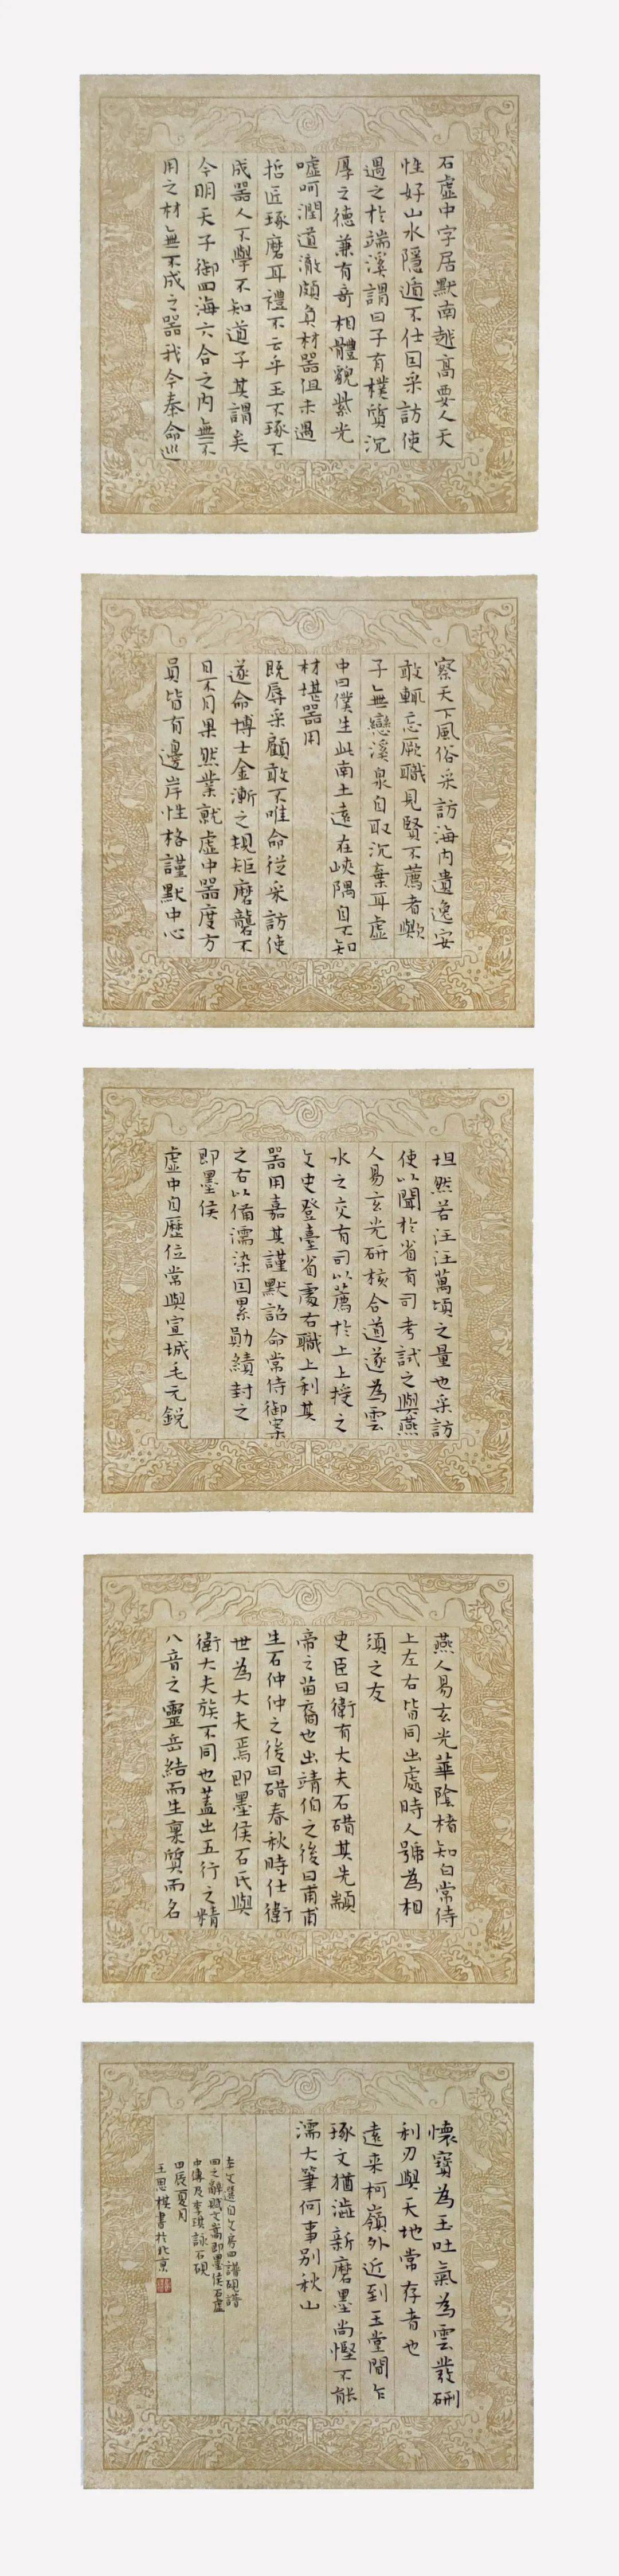 石虛中字居默南越高要人天
性好山水隱遁不仕因采訪使
遇之於端溪謂曰子有樸質沉
厚之德兼有奇相體貌紫光
噓呵潤道澈頗負材器但未遇
哲匠琢磨耳禮不云乎玉不琢不
成器人不學不知道子其謂矣
今明天子御四海六合之內無不
用之材無不成之器我今奉命巡
察天下風俗采訪海內遺逸安
敢輒忘厥職見賢不薦者歟
子無戀溪泉自取沉棄耳虛
中曰僕生此南土遠在峽隅自不知
材堪器用
既辱采顧敢不唯命從采訪使
遂命博士金漸之規矩磨礱不
日不月果然業就虛中器度方
員皆有邊岸性格謹默中心
坦然若汪汪萬頃之量也采訪
使以聞於省有司考試之與燕
人易玄光研核合道遂為雲
水之交有司以薦於上上授之
文史登臺省處右職上利其
器用嘉其謹默詔命常侍御案
之右以備濡染因累勛績封之
即墨侯
虛中自歷位常與宣城毛元銳
燕人易玄光華陰楮知白常侍
上左右皆同出處時人號為相
須之友
史臣曰衛有大夫石碏其先顓
帝之苗裔也出靖伯之後曰甫甫
生石仲仲之後曰碏春秋時仕衛
世為大夫焉即墨侯石氏與
衛大夫族不同也蓋出五行之精
八音之靈岳結而生稟質而名
懷寶為玉吐氣為雲發硎
利刃與天地常存者也
遠來柯嶺外近到玉堂間乍
琢文猶澁新磨墨尚慳不能
濡大筆何事別秋山
本文選自文房四譜硯譜
四之辭賦文嵩即墨侯石虛
中傳及李琪詠石硯
甲辰夏月
王思棋書於北京